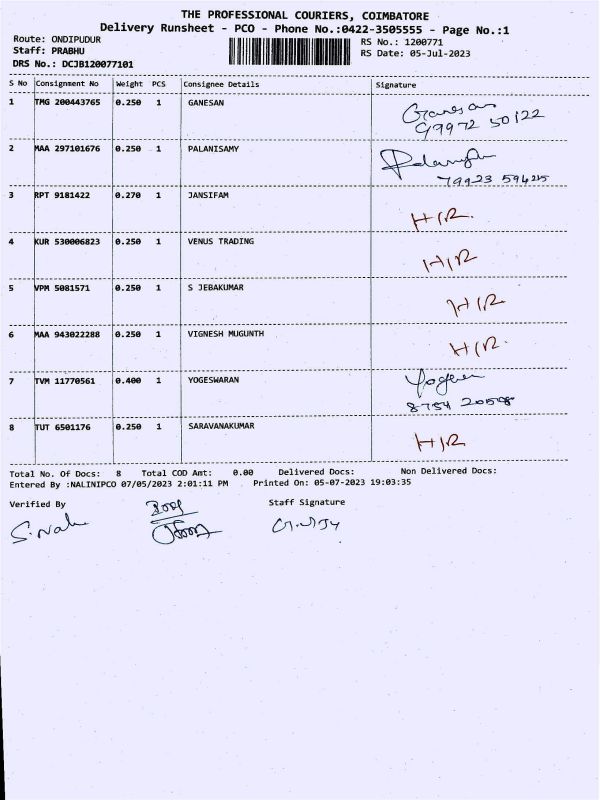 THE PROFESSIONAL COURIERS, COIMBATORE
Delivery Runsheet - PCO - Phone No.:0422-3505555 - Page No.:1
Route: ONDIPUDUR RS No.: 1200771
Staff: PRABHU RS Date: 05-Jul-2023
DRS No.: DCJB120077101
S No Consignment No Weight PCS Consignee Details Signature
1 TMG 200443765 0.250 1 GANESAN Ganesan
99972 50122
2 MAA 297101676 0.250 1 PALANISAMY
79923
3 RPT 9181422 0.270 1 JANSIFAM H/R.
4 KUR 530006823 0.250 1 VENUS TRADING H/R
5 VPM 5081571 0.250 1 S JEBAKUMAR H/R
6 MAA 943022288 0.250 1 VIGNESH MUGUNTH H/R.
7 TVM 11770561 0.400 1 YOGESWARAN
8754
8 TUT 6501176 0.250 1 SARAVANAKUMAR H/R
Total No. Of Docs: 8 Total COD Amt: 0.00 Delivered Docs: Non Delivered Docs:
Entered By :NALINIPCO 07/05/2023 2:01:11 PM Printed On: 05-07-2023 19:03:35
Verified By Staff Signature